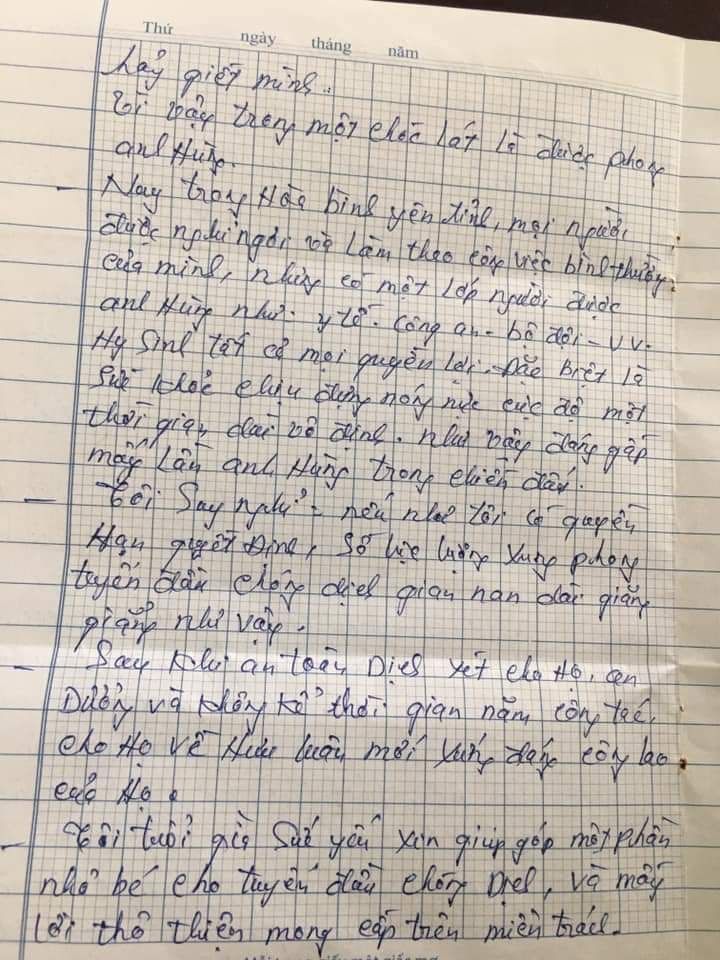 Thứ ngày tháng năm
hảy giết mình..
Vì vậy trong một chốc lát là được phong
anh Hùng.
- Nay trong Hòa bình yên tỉnh, mọi người
được nghỉ ngơi và làm theo công việc bình thường.
của mình, nhưng có một lớp người được
anh Hùng như. y tế. công an - bộ đội - vv.
Hy Sinh tất cả mọi quyền lợi. Đặc biệt là
Sức khỏe chịu đựng nóng nực cực độ một
thời gian dài vô định. như vậy đáng gấp
mấy lần anh Hùng trong chiến đấu.
- Tôi Suy nghỉ = nếu như tôi có quyền
Hạn quyết Định, số lực lượng xung phong
tuyến đầu chống dịch gian nan dài giẵng
giẵng như vậy.
- Say khi an toàn Dịch xét cho Họ, an
Dưởng và không kể thời gian năm công tác,
cho Họ về Hưu luôn mới xứng đáng công lao
của Họ.
- Tôi tuổi già Sức yếu xin giúp góp một phần
nhỏ bé cho tuyến đầu chống Dịch, và mấy
lời thô thiện mong cấp trên miễn trách.